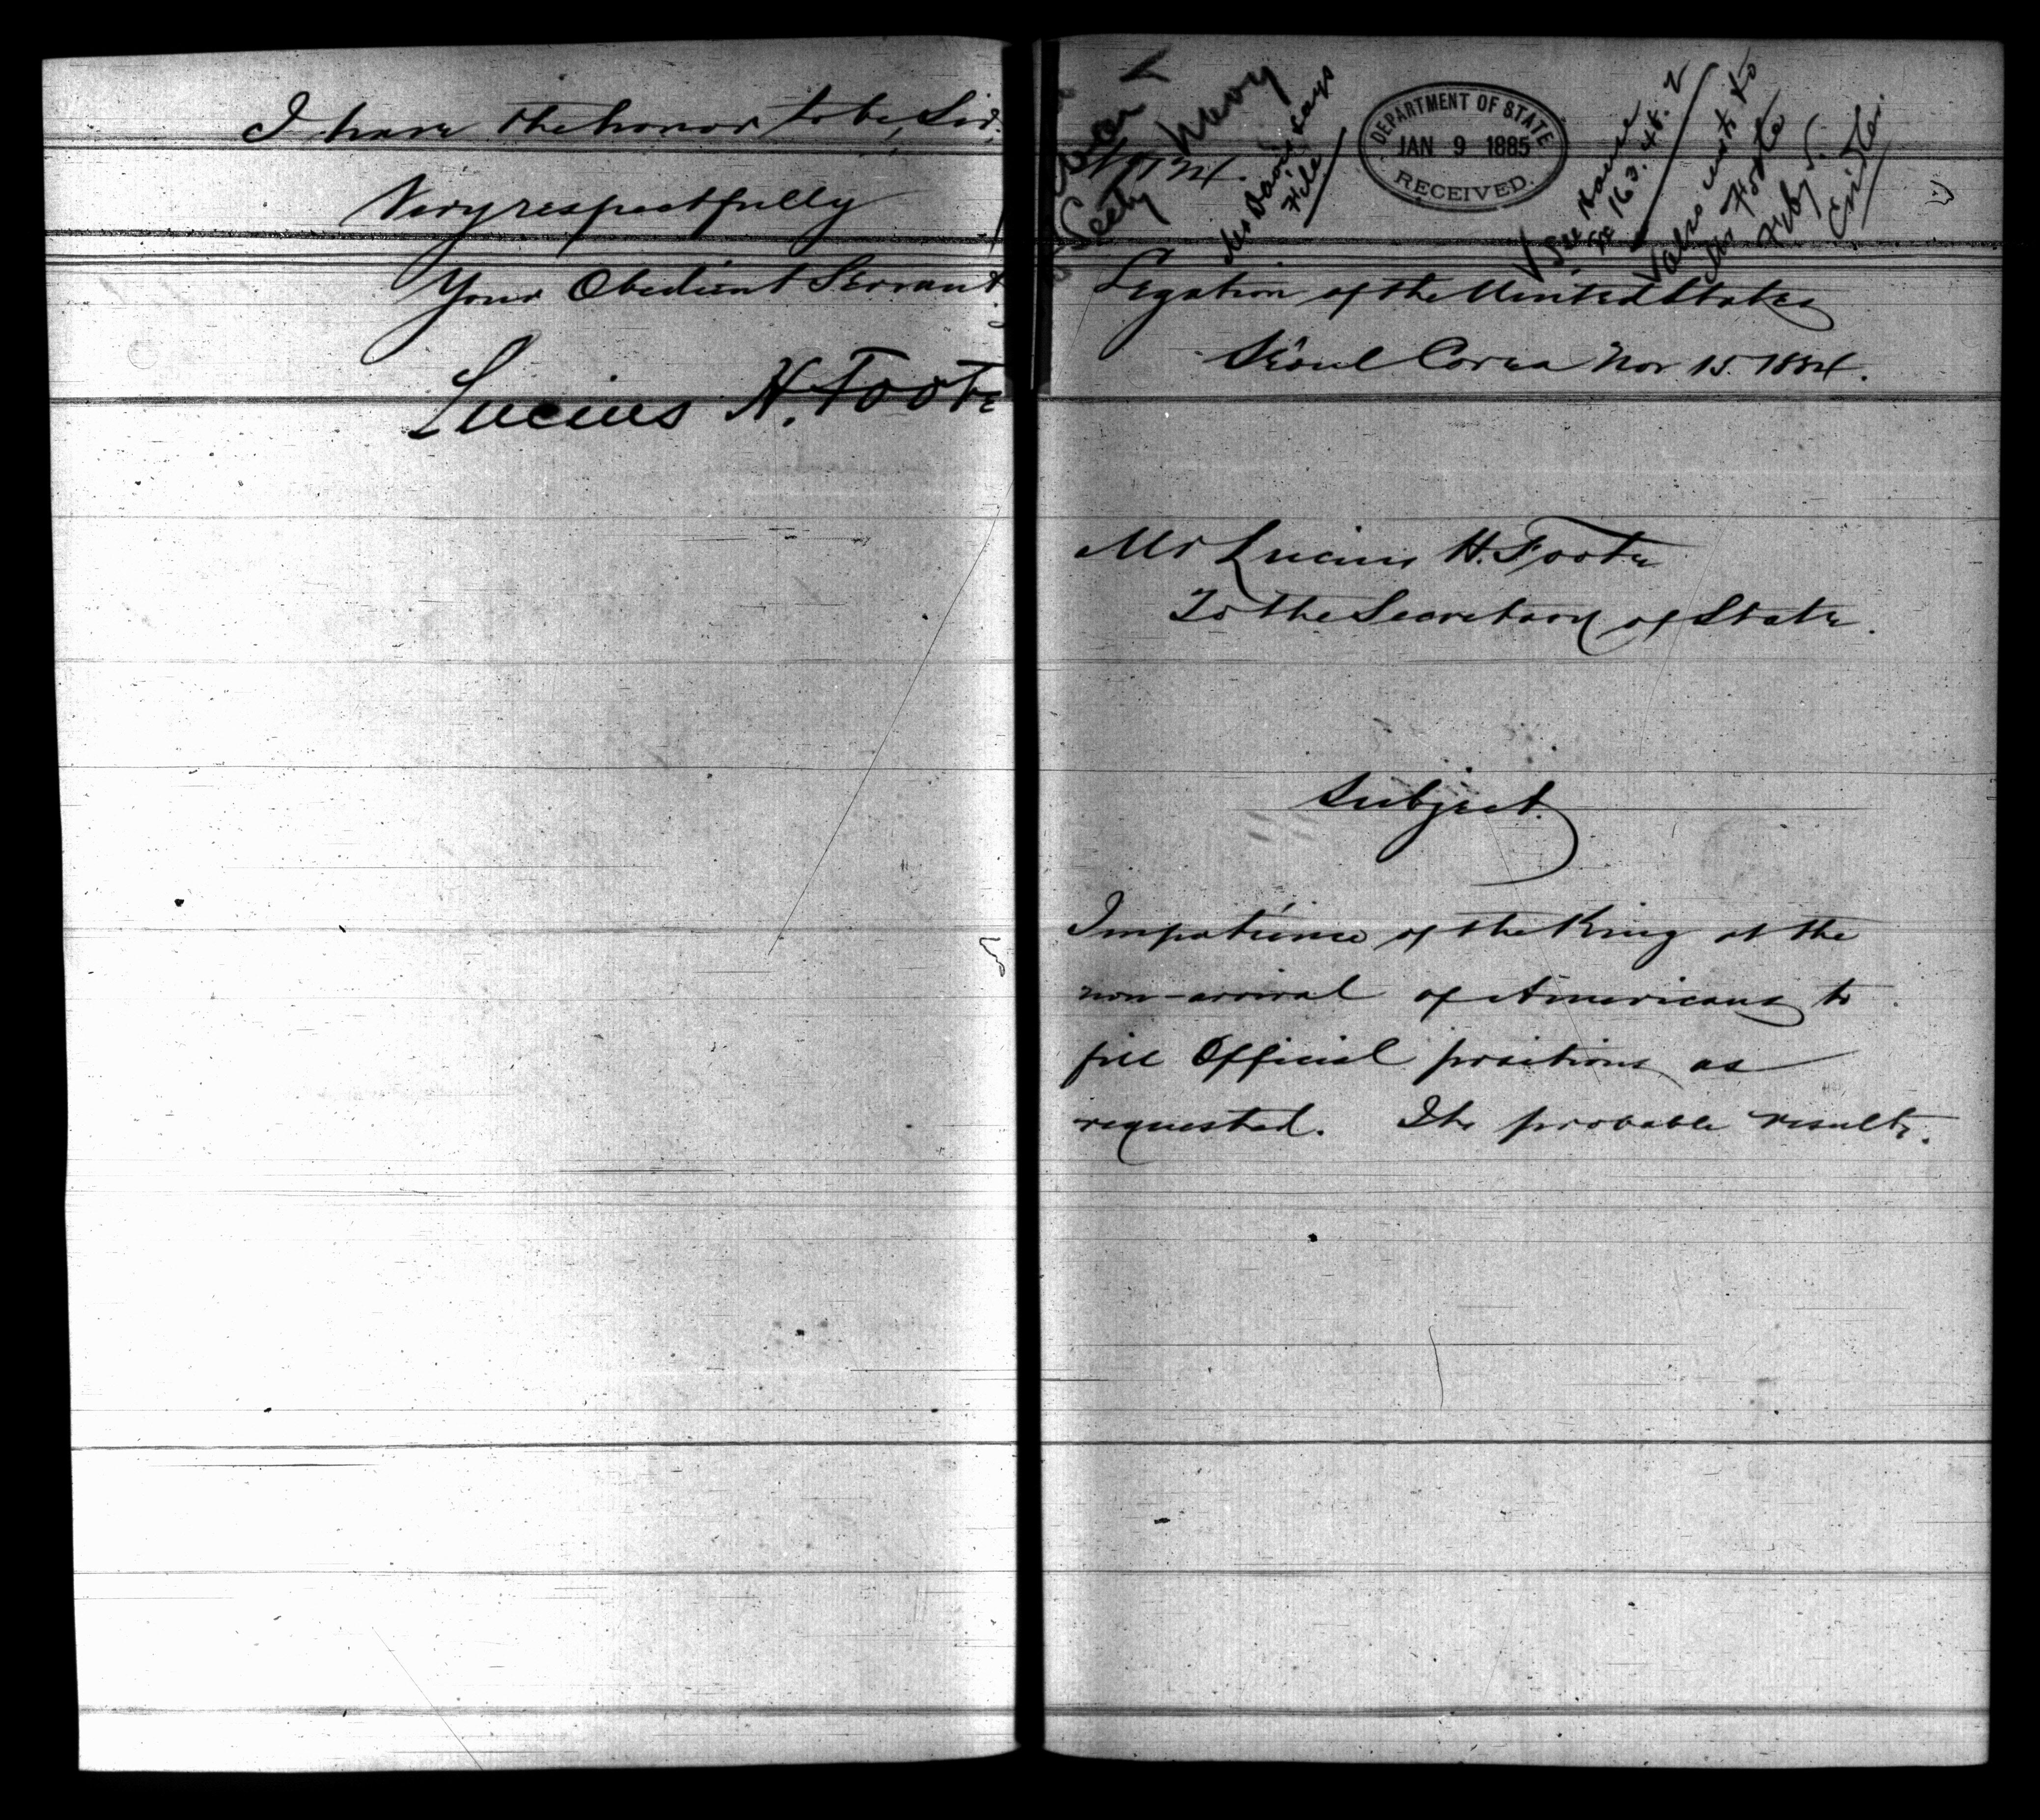 I have the honor to be, Sir.
Very respectfully
Your Obedient Servant
Lucius H. Foote
Navy
Mr Davis says
File
DEPARTMENT OF STATE
JAN 9 1885
RECEIVED.
See House
Ex 163. 48. 2
also inst to
Mr Foote
Feby 5.
Legation of the United States
Séoul Corea Nov 15. 1884.
Mr Lucius H. Foote
To the Secretary of State.
Subject.
Impatience of the King at the
non-arrival of Americans to
fill Official positions as
requested. The probable result.